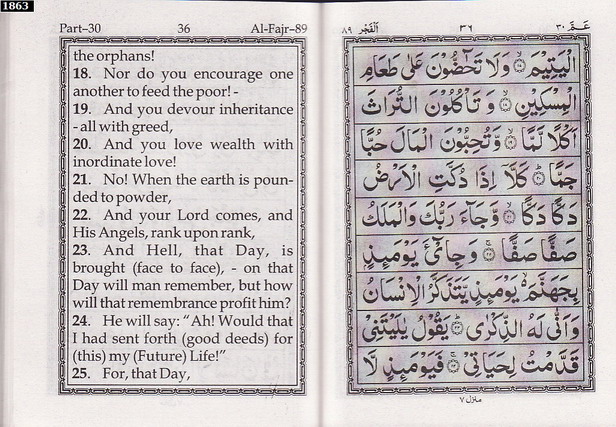 1863
Part–30 36 Al-Fajr–89
the orphans!
18. Nor do you encourage one
another to feed the poor! -
19. And you devour inheritance
- all with greed,
20. And you love wealth with
inordinate love!
21. No! When the earth is poun-
ded to powder,
22. And your Lord comes, and
His Angels, rank upon rank,
23. And Hell, that Day, is
brought (face to face), - on that
Day will man remember, but how
will that remembrance profit him?
24. He will say: “Ah! Would that
I had sent forth (good deeds) for
(this) my (Future) Life!”
25. For, that Day,
عَمَّ ٣٠ ٣٦ اَلْفَجْر ٨٩
الْيَتِيْمَ ۙ‏﴿١٧﴾ وَلَا تَحٰٓضُّوْنَ عَلٰى طَعَامِ
الْمِسْكِيْنِ ۙ‏﴿١٨﴾ وَ تَاْكُلُوْنَ التُّرَاثَ
اَكْلًا لَّمًّا ۙ‏﴿١٩﴾ وَّتُحِبُّوْنَ الْمَالَ حُبًّا
جَمًّا ؕ‏﴿٢٠﴾ كَلَّاۤ اِذَا دُكَّتِ الْاَرْضُ
دَكًّا دَكًّا ۙ‏﴿٢١﴾ وَّجَآءَ رَبُّكَ وَالْمَلَكُ
صَفًّا صَفًّا ۚ‏﴿٢٢﴾ وَجِایْٓءَ يَوْمَىِٕذٍۭ
بِجَهَنَّمَ ۙ۬ يَوْمَىِٕذٍ يَّتَذَكَّرُ الْاِنْسَانُ
وَاَنّٰى لَهُ الذِّكْرٰى ؕ‏﴿٢٣﴾ يَقُوْلُ يٰلَيْتَنِىْ
قَدَّمْتُ لِحَيَاتِىْ ۚ‏﴿٢٤﴾ فَيَوْمَىِٕذٍ لَّا
منزل ٧